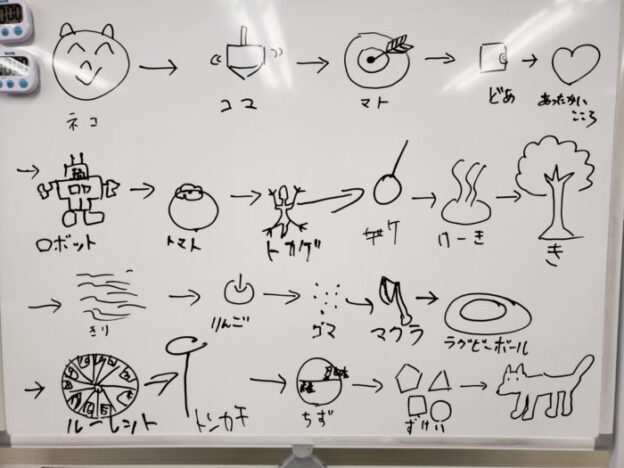 ネコ
コマ
マト
どあ
あったかい
こころ
ロボット
トマト
トカゲ
ケーキ
き
きり
りんご
ゴマ
マクラ
ラグビーボール
ルーレット
トンカチ
ちず
ずけい